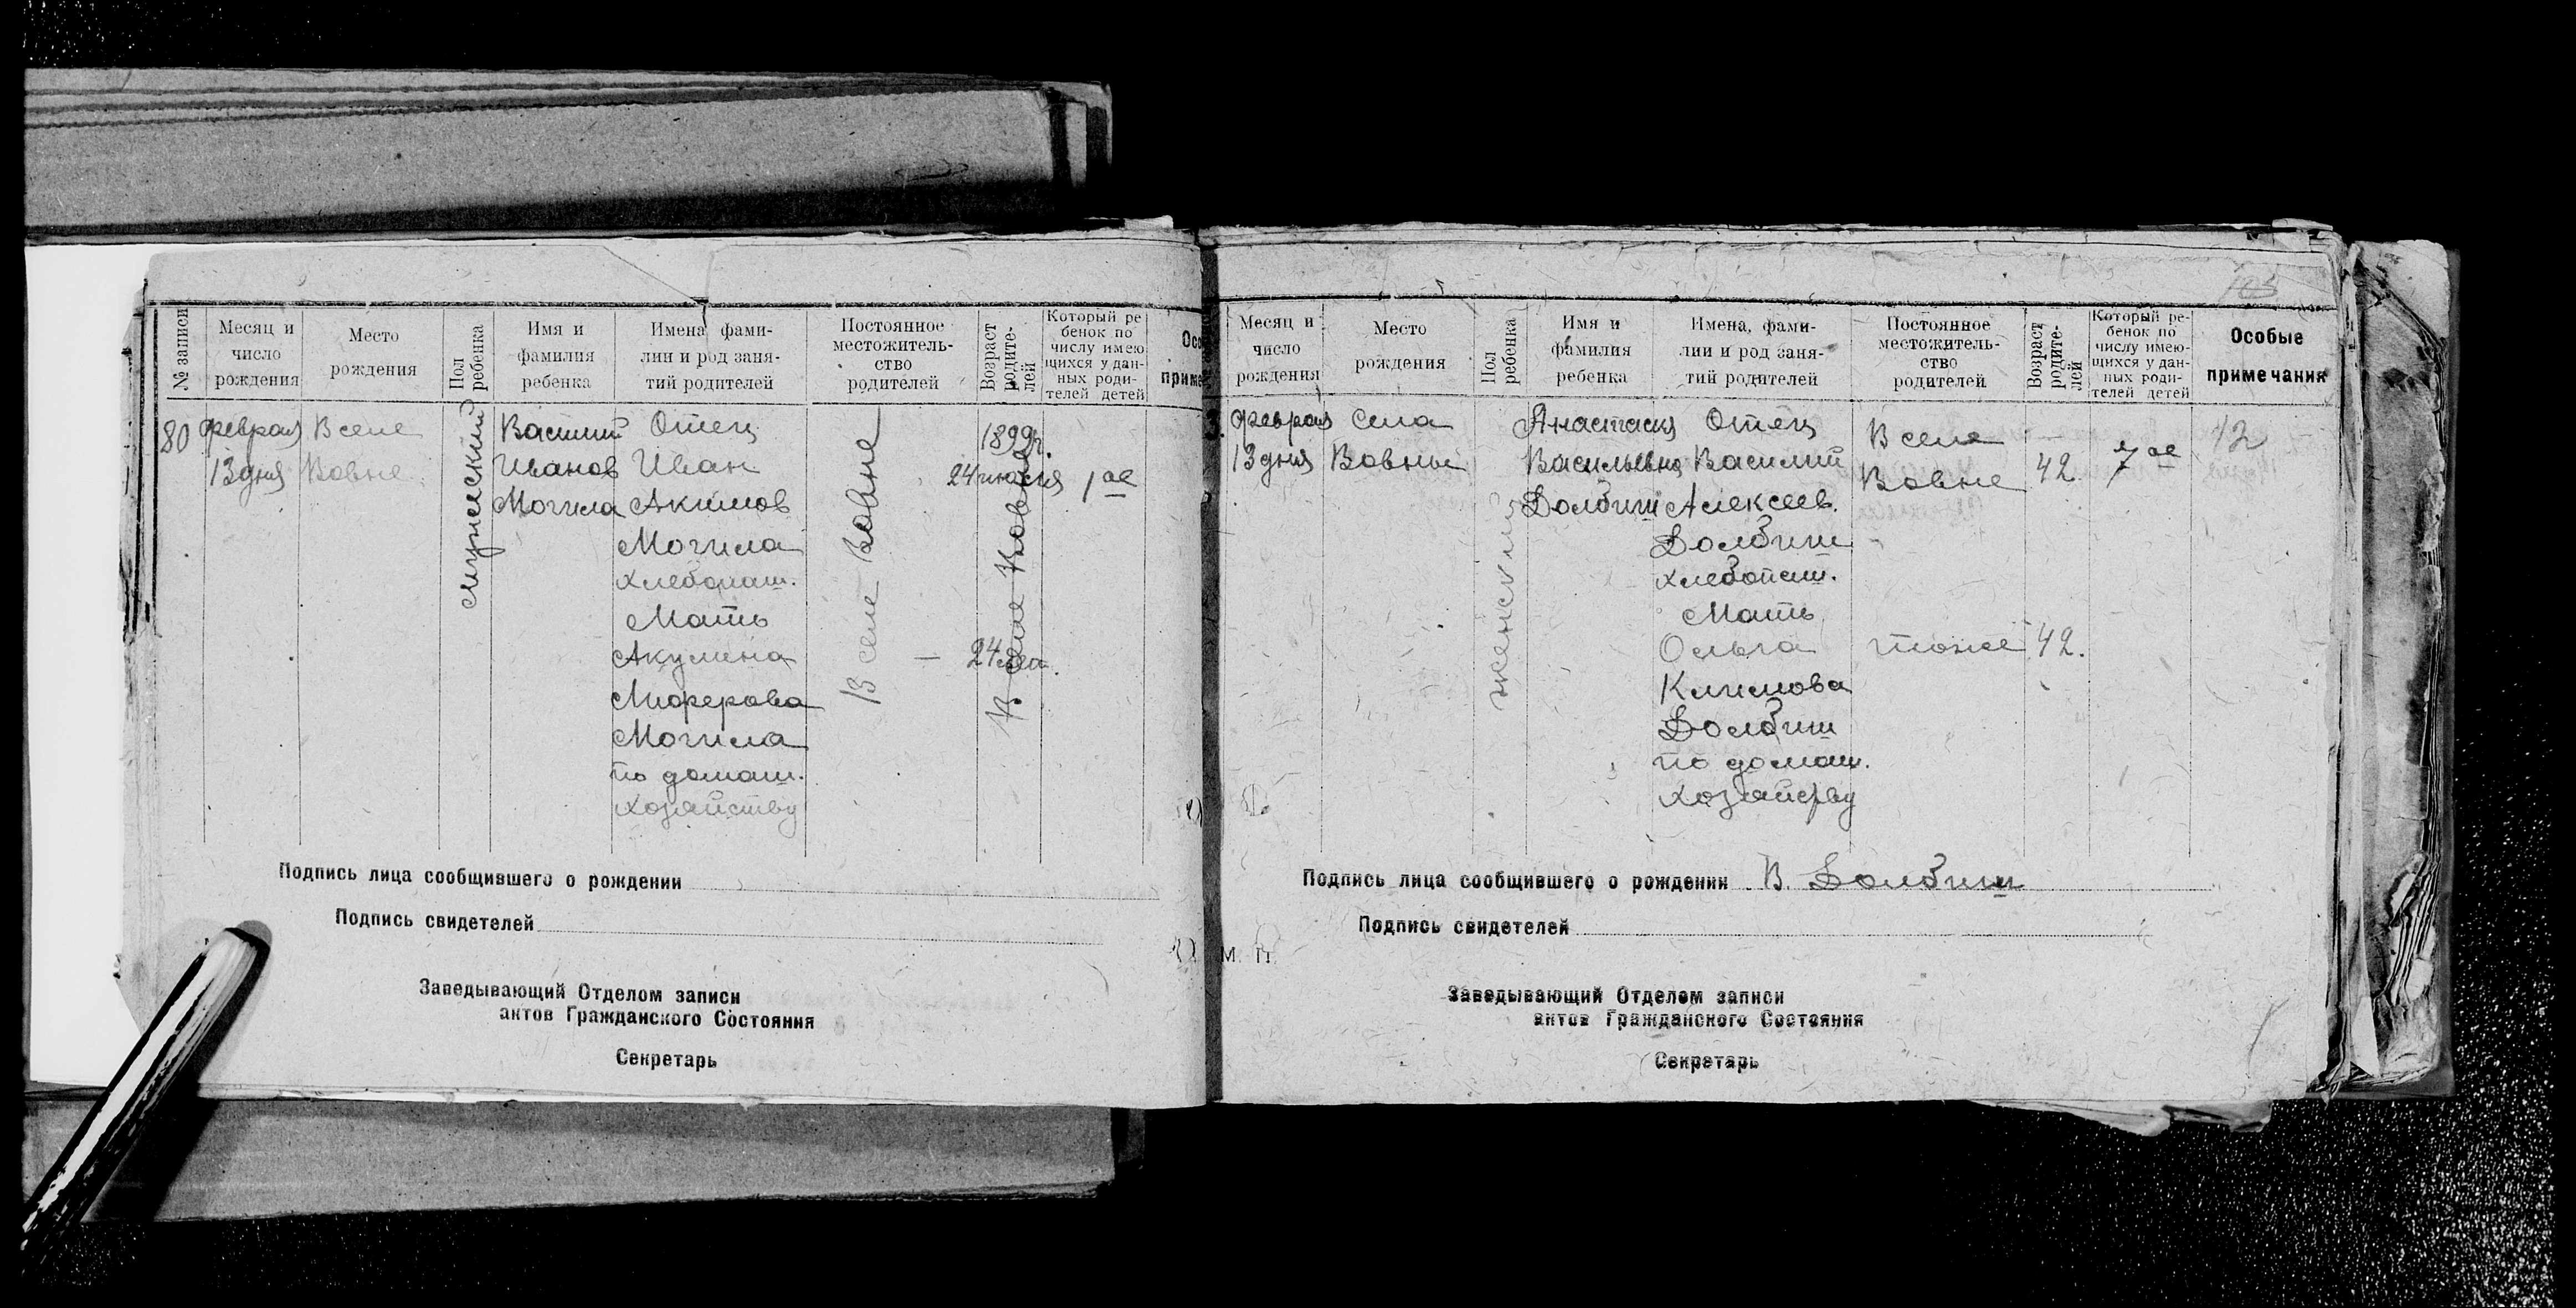 № записи
Месяц и число рождения
Место рождения
Пол ребенка
Имя и фамилия ребенка
Имена, фамилии и род занятий родителей
Постоянное местожительство родителей
Возраст родителей
Который ребенок по числу имеющихся у данных родителей детей
80
Феврал
13 дня
В селе
Вовне
мужеский
Василий
Иванов
Могила
Отец
Иван
Акимов
Могила
хлебопаш.
Мать
Акулина
Миферова
Могила
по домаш.
хозяйству
В селе Вовне
1899г.
24
1ое
24 лет.
В селе Вовне
Подпись лица сообщившего о рождении
Подпись свидетелей
Заведывающий Отделом записи
актов Гражданского Состояния
Секретарь
Месяц и число рождения
Место рождения
Пол ребенка
Имя и фамилия ребенка
Имена, фамилии и род занятий родителей
Постоянное местожительство родителей
Возраст родителей
Который ребенок по числу имеющихся у данных родителей детей
Особые примечания
Феврал
13 дня
Села
Вовны
женский
Анастасия
Васильевна
Долбиш
Отец
Василий
Алексеев.
Долбиш
хлебопаш.
Мать
Ольга
Климова
Долбиш
по домаш.
хозяйству
В селе
Вовне
тоже
42
42.
7ое
12
Подпись лица сообщившего о рождении В. Долбиш
Подпись свидетелей
М. П.
Заведывающий Отделом записи
актов Гражданского Состояния
Секретарь